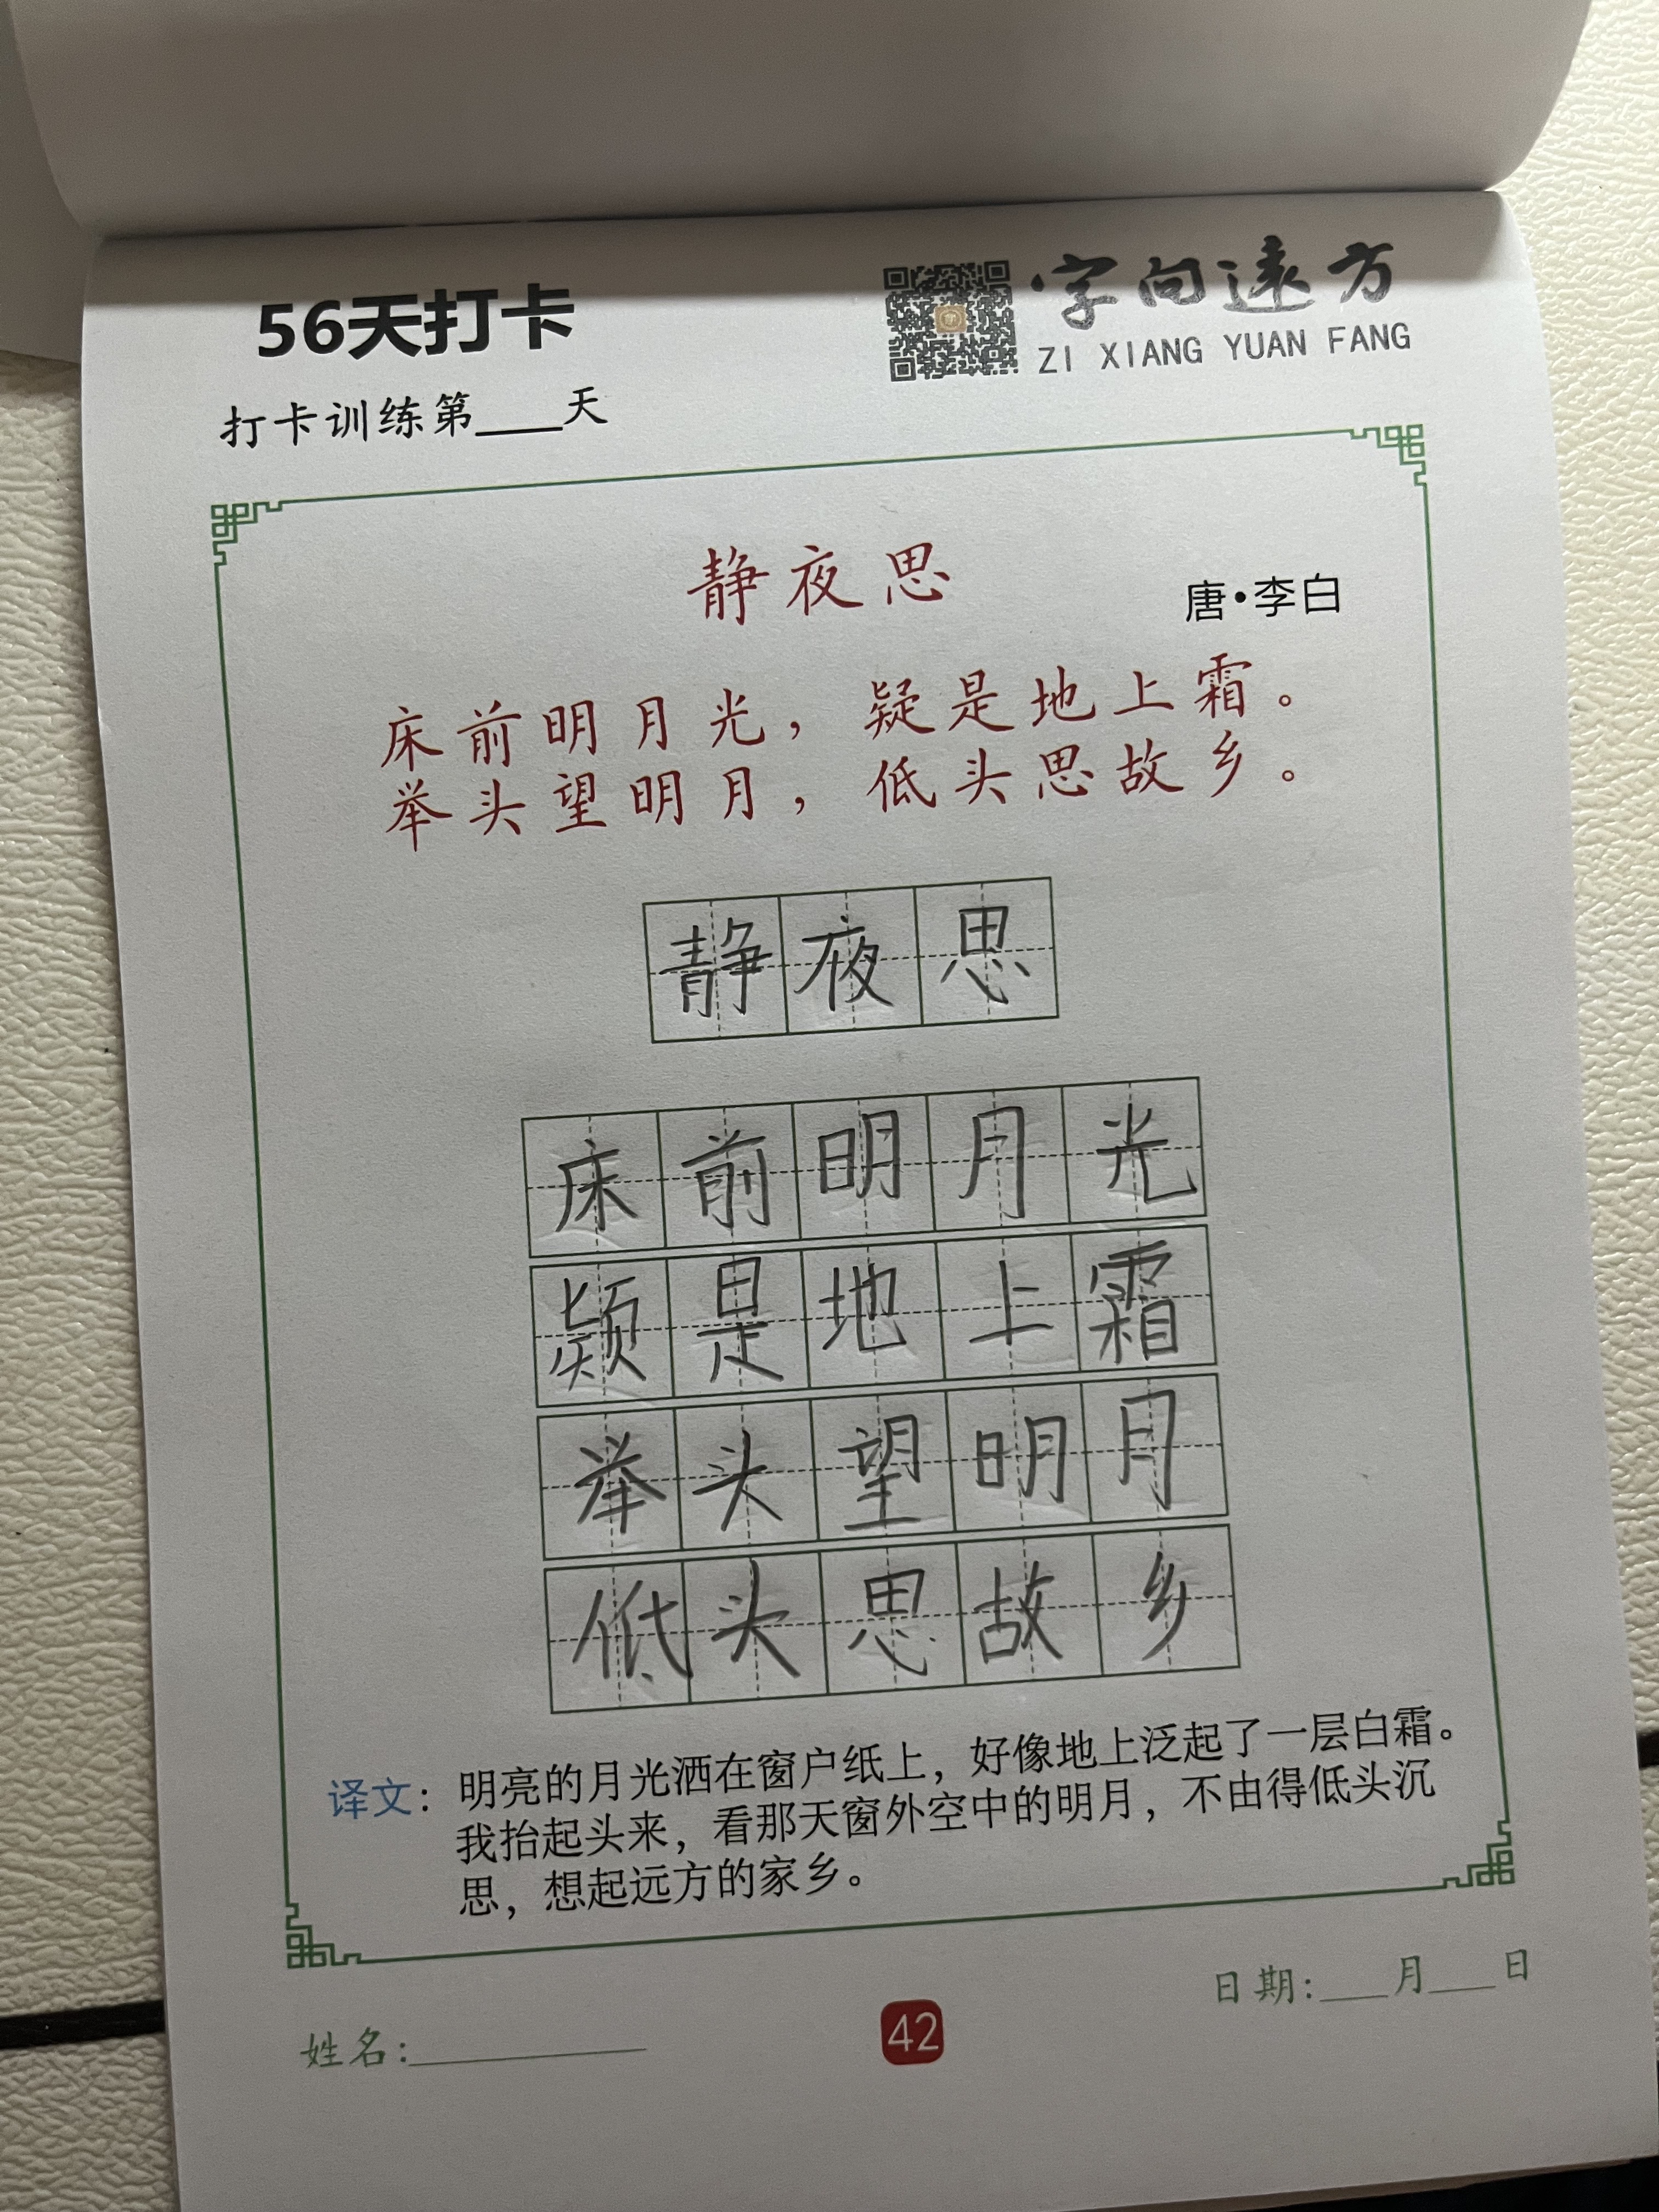 56天打卡
字向遠方
ZI XIANG YUAN FANG
打卡训练第___天
静夜思
唐•李白
床前明月光，疑是地上霜。
举头望明月，低头思故乡。
静夜思
床前明月光
颍是地上霜
举头望明月
低头思故乡
译文：明亮的月光洒在窗户纸上，好像地上泛起了一层白霜。
我抬起头来，看那天窗外空中的明月，不由得低头沉
思，想起远方的家乡。
日期:___月___日
姓名:___
42